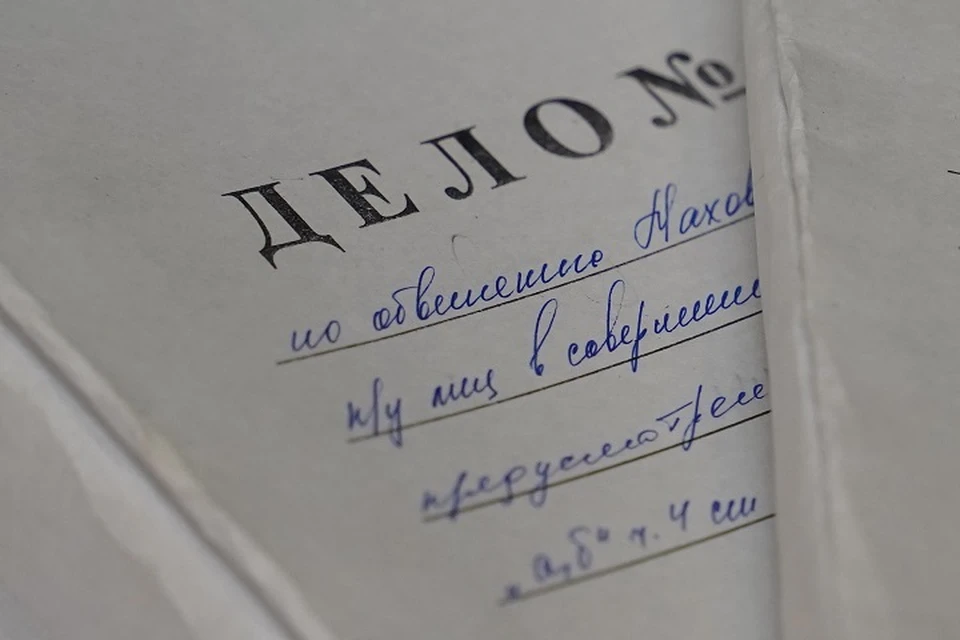 ДЕЛО №
по обвинению Махов
гр/у лиц в совершении
предусмотрен
"а,б" ч. 4 ст